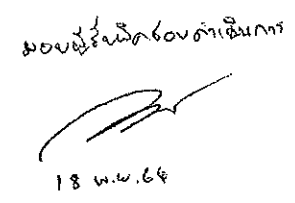 มอบผู้รับผิดชอบดำเนินการ
18 พ.ย. 64